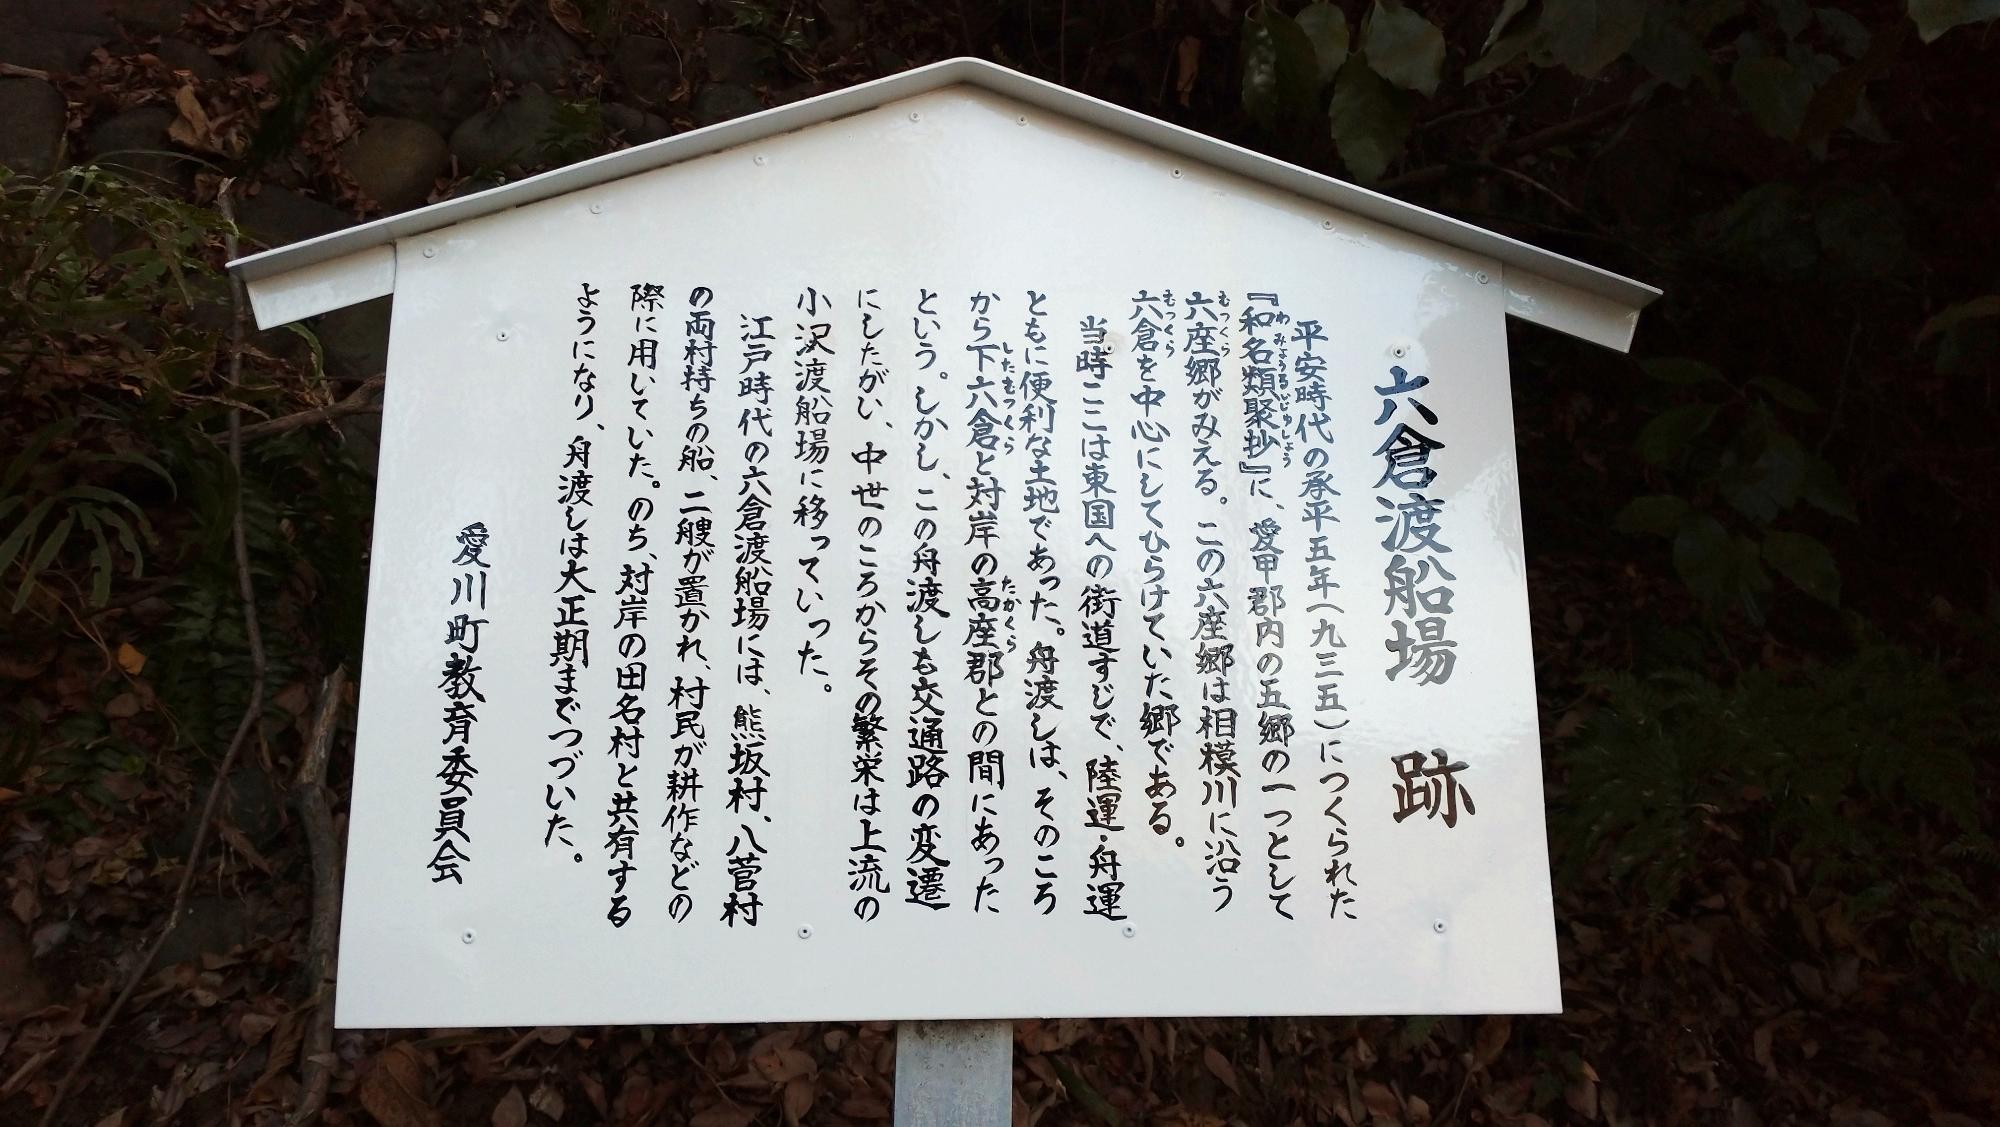 六倉渡船場 跡
平安時代の承平五年(九三五)につくられた
『和名類聚抄』に、愛甲郡内の五郷の一つとして
わみょうるいじゅしょう
六座郷がみえる。この六座郷は相模川に沿う
むつくら
六倉を中心にしてひらけていた郷である。
むつくら
当時ここは東国への街道すじで、陸運・舟運
ともに便利な土地であった。舟渡しは、そのころ
から下六倉と対岸の高座郡との間にあった
したむつくら たかくら
という。しかし、この舟渡しも交通路の変遷
にしたがい、中世のころからその繁栄は上流の
小沢渡船場に移っていった。
江戸時代の六倉渡船場には、熊坂村、八菅村
の両村持ちの船、二艘が置かれ、村民が耕作などの
際に用いていた。のち、対岸の田名村と共有する
ようになり、舟渡しは大正期までつづいた。
愛川町教育委員会